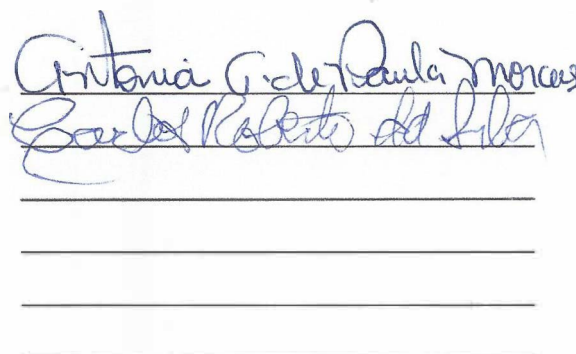 Antonia G. de Paula Moraes
Carlos Roberto da Silva